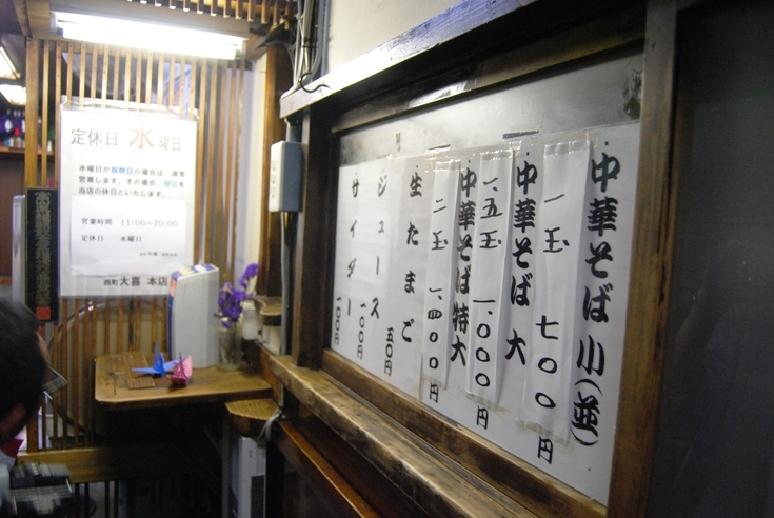 定休日 水曜日
水曜日が祝祭日の場合は 通常
営業します。その場合、翌日を
当店の休日といたします。
営業時間 11:00〜20:00
定休日 水曜日
大喜 本店
中華そば 小(並)
一玉 七〇〇円
中華そば 大
一、五玉 一、〇〇〇円
中華そば 特大
二玉 一、四〇〇円
生たまご 五〇円
ジュース 一〇〇円
サイダー 一〇〇円